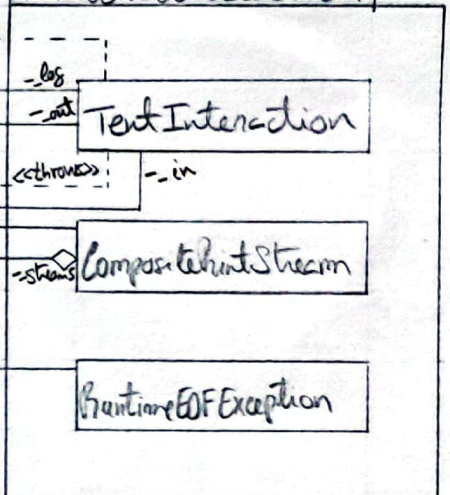 -_log
-_out
TextInteraction
<<throws>>
-_in
CompositePrintStream
-streams
RuntimeEOFException